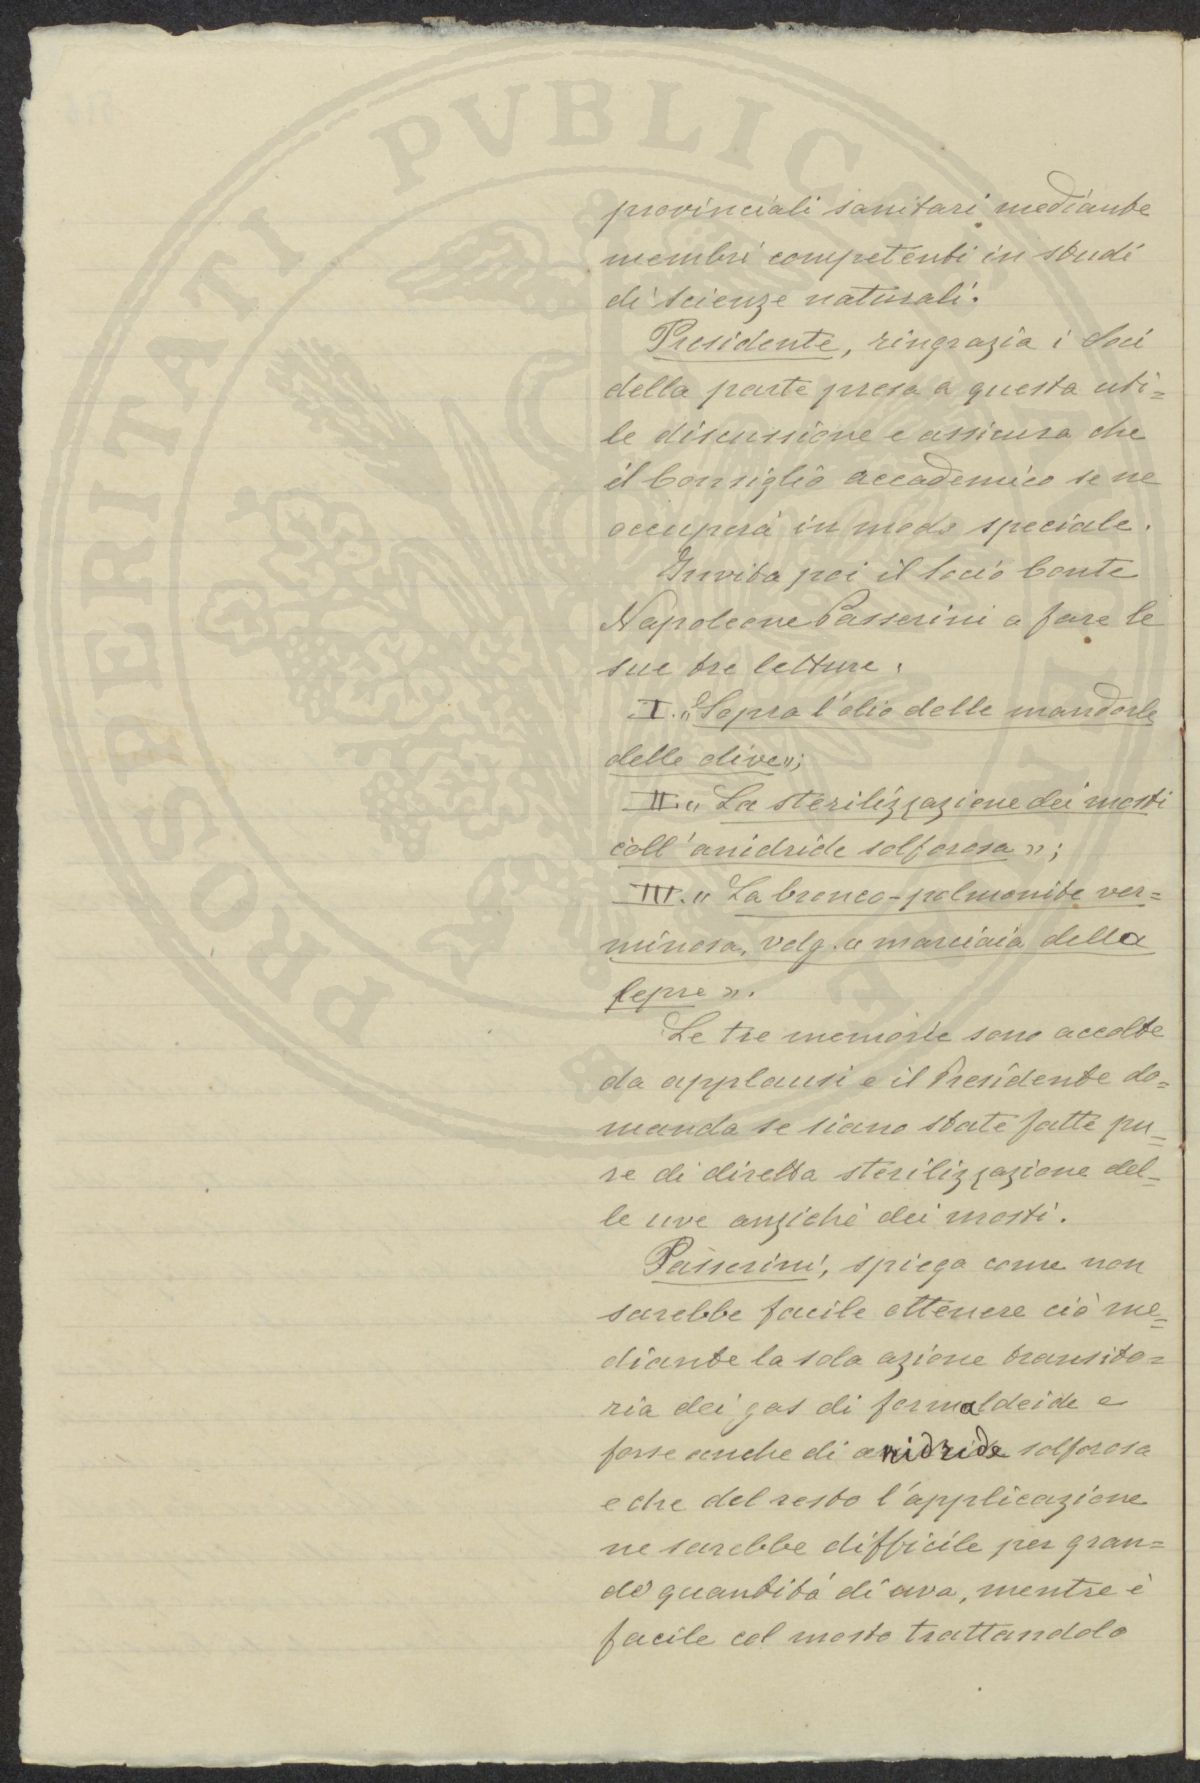 provinciali sanitari mediante
membri competenti in studi
di scienze naturali.
Presidente, ringrazia i Soci
della parte presa a questa uti=
le discussione e assicura che
il Consiglio accademico se ne
occuperà in modo speciale.
Invita poi il socio Conte
Napoleone Passerini a fare le
sue tre letture.
I. "Sopra l'olio delle mandorle
delle olive";
II. "La sterilizzazione dei mosti
coll'anidride solforosa";
III. "La bronco-polmonite ver=
minosa, volg. a marciaia della
lepre".
Le tre memorie sono accolte
da applausi e il Presidente do=
manda se siano state fatte pu=
re di diretta sterilizzazione del=
le uve anziché dei mosti.
Passerini, spiega come non
sarebbe facile ottenere ciò me=
diante la sola azione transito=
ria dei gas di formaldeide e
forse anche di anidride solforosa
e che del resto l'applicazione
ne sarebbe difficile per gran=
di quantità di uva, mentre è
facile col mosto trattandolo
PROSPERITATI PVBLICAE